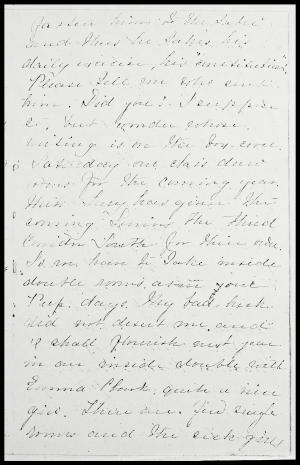 fasten him to the table
and thus he takes his
daily exercise, his "constitutional".
Please tell me who sent
him. Did you? I suppose
so, but wonder whose
writing is on the box cover.
Saturday our class drew
rooms for the coming year.
this year they have given the
coming Seniors the third
Corridor South for their own.
So we have to take inside
double rooms, as in your
Prep. days. My bad luck
did not desert me, and
I shall flourish next year
in an inside double with
Emma Clark, quite a nice
girl. There are few single
rooms and the sick girls